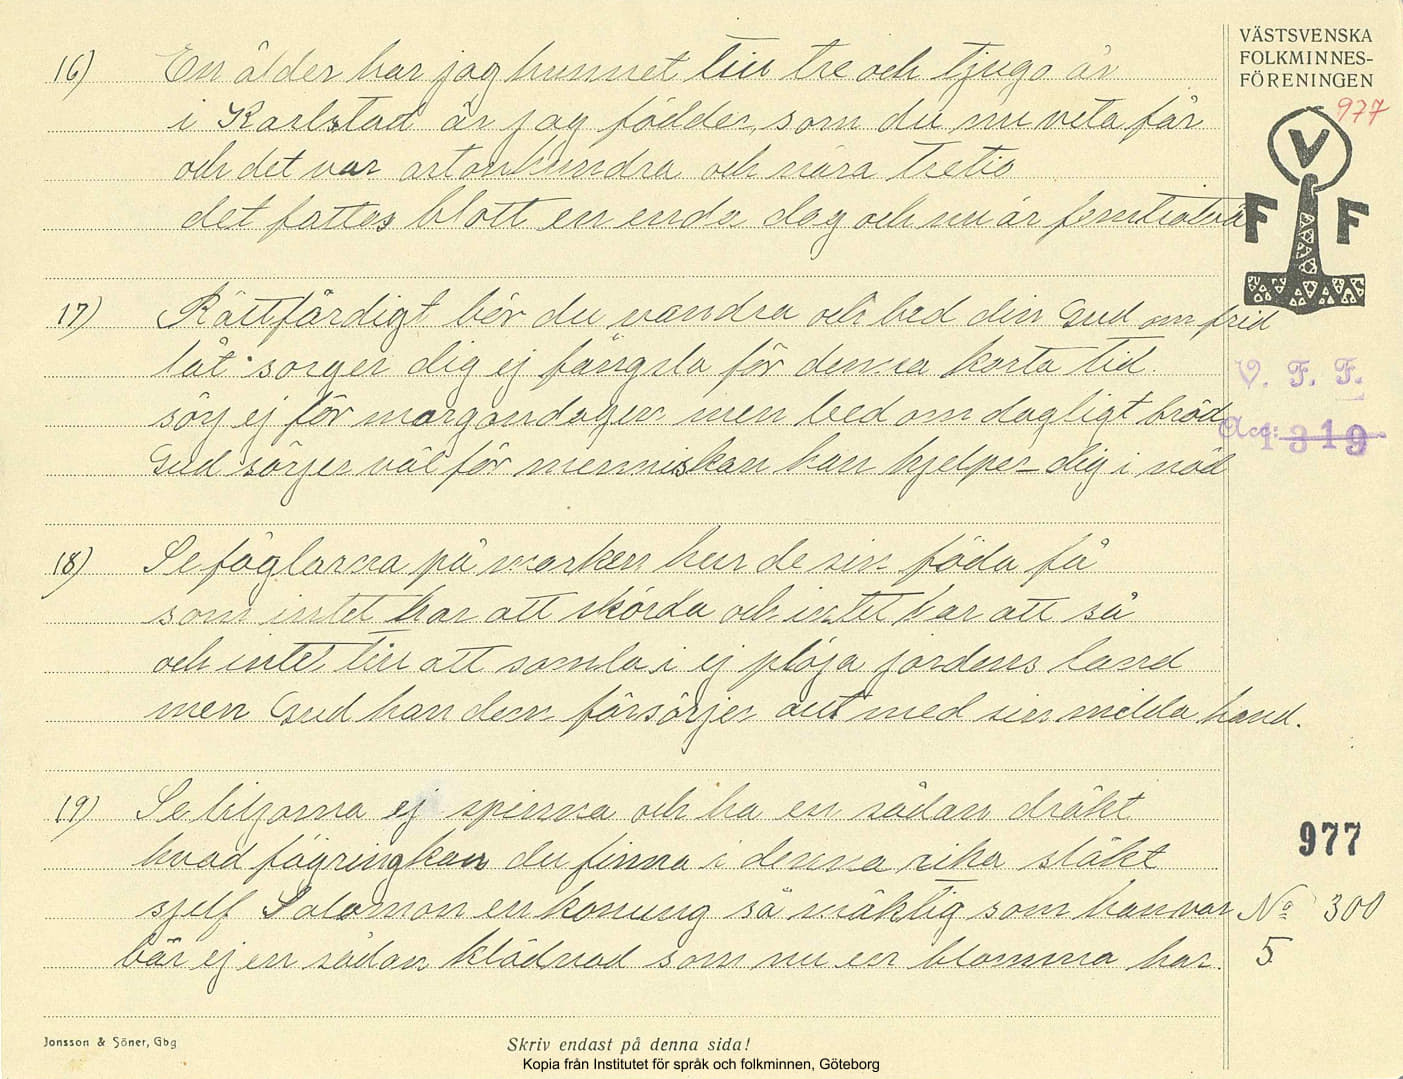 16) En ålder har jag hunnet till tre och tjugo år
i Karlstad är jag födder, som du nu veta får
och det var artonhundra och nära tretio
det fattes blott en enda dag och nu är femtiotvå
17) Rättfärdigt bör du vandra och bed din Gud om frid
låt sorger dig ej fängsla för denna korta tid.
sörj ej för morgondagen men bed om dagligt bröd
Gud sörjer väl för menniskan han hjelper dig i nöd
18) Se foglarna på marken hur de sin föda få
som intet har att skörda och intet har att så
och intet till att samla i ej plöja jordens land
men Gud han dem försörjer allt med sin milda hand.
19) Se liljorna ej spinna och ha en sådan dräkt
hvad fägring kan du finna i denna rika släkt
sjelf Salomon en konung så mäktig som han var
bär ej en sådan klädnad som nu en blomma har.
VÄSTSVENSKA
FOLKMINNES-
FÖRENINGEN
977
V
F F
V. F. F.
Acc: 1319
977
No 300
5
Jonsson & Söner, Gbg
Skriv endast på denna sida!
Kopia från Institutet för språk och folkminnen, Göteborg